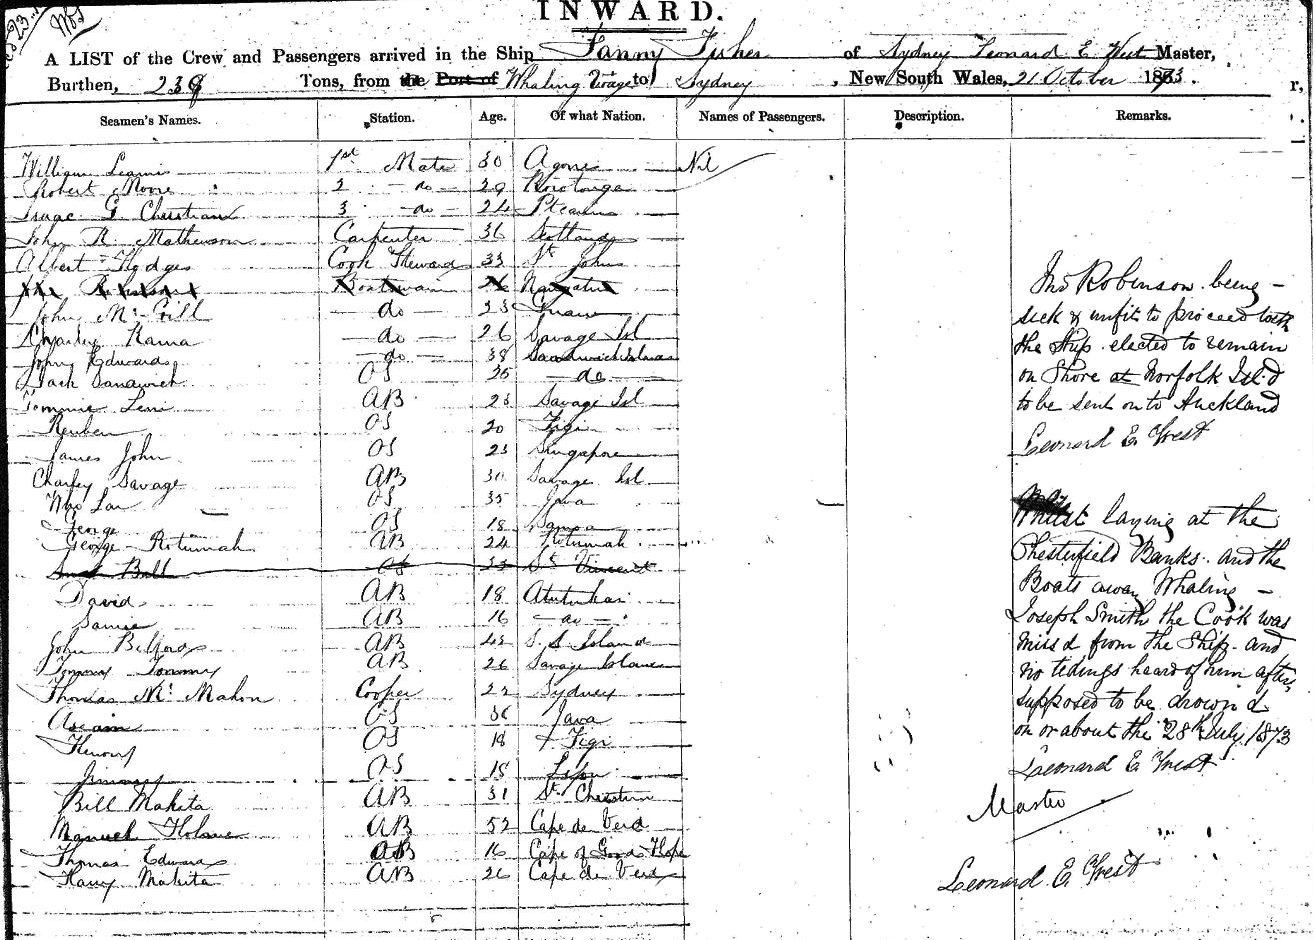 INWARD.
A LIST of the Crew and Passengers arrived in the Ship Fanny Fisher of Sydney Leonard E. West Master,
Burthen, 238 Tons, from the Port of Whaling Voyage to Sydney, New South Wales, 21 October 1873.
Seamen's Names. Station. Age. Of what Nation. Names of Passengers. Description. Remarks.
William 1st Mate 30 Nil
Robert Moore 2 - do - 29
Isaac G Christian 3 - do - 24
John R. Mathewson Carpenter 36 Scotland
Albert Hodges Cook Steward 33 St Johns
Boatman 26
John - do - 23
Charley - do - 26 Savage Isl
John Edwards - do - 38 Sandwich Islands
Jack Sandwich OS 25 - do -
Tommie AB 23 Savage Isl
Reuben OS 20 Figi
James John OS 23 Singapore
Charley Savage AB 30 Savage Isl
OS 35 Java
George OS 18
George Rotumah AB 24 Rotumah
Bill OS 33 St Vincent
David AB 18
AB 16 - do -
John AB 42 S. S Island
Tommy Tommy AB 26 Savage Island
Thomas Mc Mahon Cooper 22 Sydney
OS 36 Java
OS 18 Figi
Jimmy OS 18 Lifu
Bill Makita AB 31 St
Manuel AB 52 Cape de Verd
Thomas Edwards AB 16 Cape of Good Hope
Harry Makita AB 26 Cape de Verd
Jno Robinson being
sick & unfit to proceed with
the Ship elected to remain
on Shore at Norfolk Isl'd
to be sent on to Auckland
Leonard E. West
Whilst laying at the
Chesterfield Banks and the
Boats away Whaling -
Joseph Smith the Cook was
miss'd from the Ship and
no tidings heard of him after,
supposed to be drown'd
on or about the 28th July 1873
Leonard E. West
Master
Leonard E. West